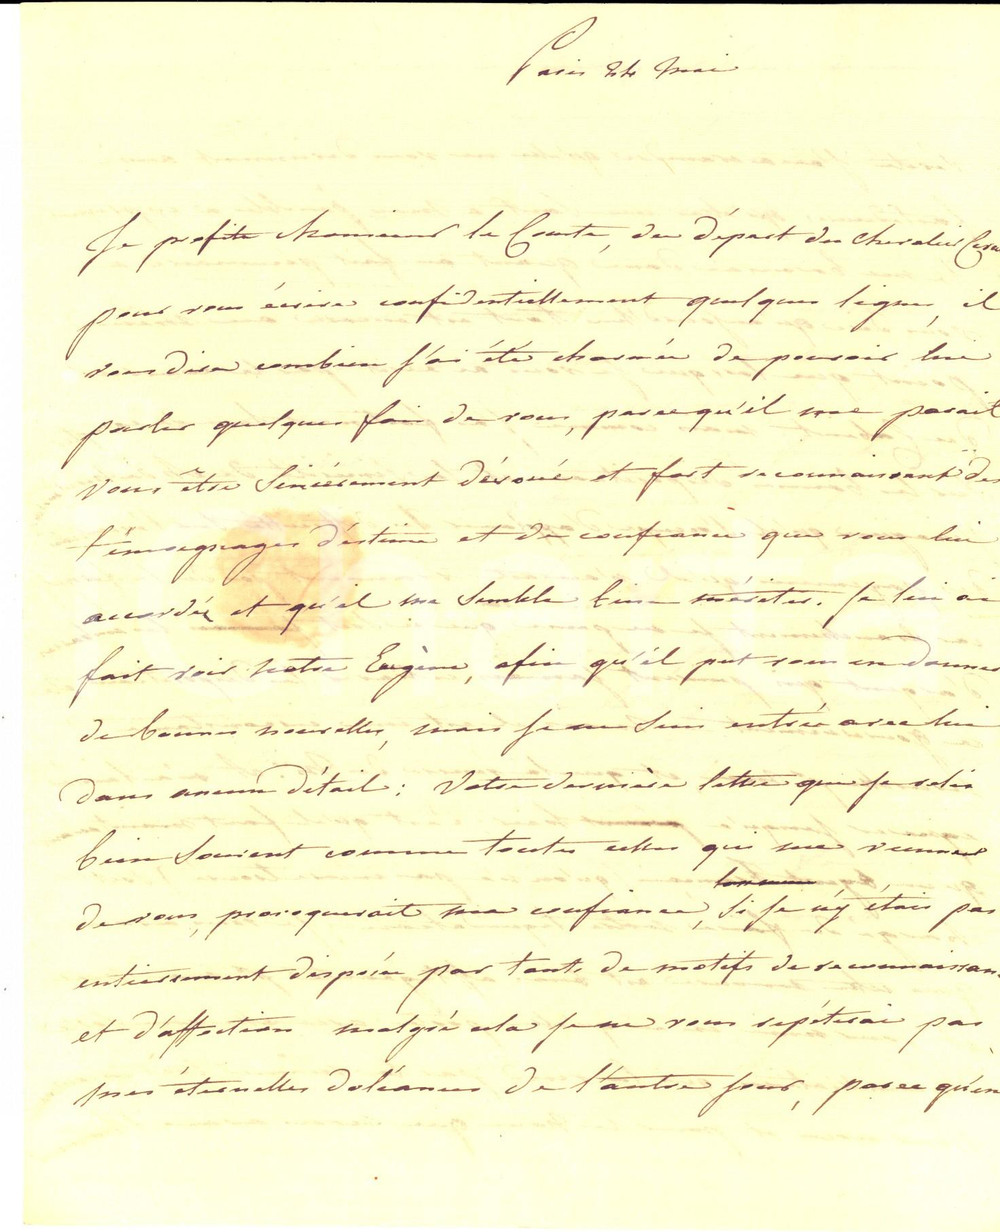 Paris 24 mai
Je profite Monsieur le Comte, du départ du chevalier
pour vous écrire confidentiellement quelques lignes, il
vous dira combien j'ai été charmée de pouvoir lui
parler quelques fois de vous, parce qu'il me parait
vous être sincérement dévoué et fort reconnaissant des
témoignages d'éstime et de confiance que vous lui
accordéz et qu'il me semble bien mériter. Je lui ai
fait voir notre Eugène, afin qu'il put vous en donner
de bonnes nouvelles, mais je ne suis entrée avec lui
dans aucun détail : Votre dernière lettre que je relis
bien souvent comme toutes celles qui me viennent
de vous, provoquerait ma confiance, si je n'y étais pas
entierement disposée par tants de motifs de reconnaissance
et d'affection malgré cela je ne vous repéterai pas
mes éternelles doléances de l'autre jour, parce qu'en